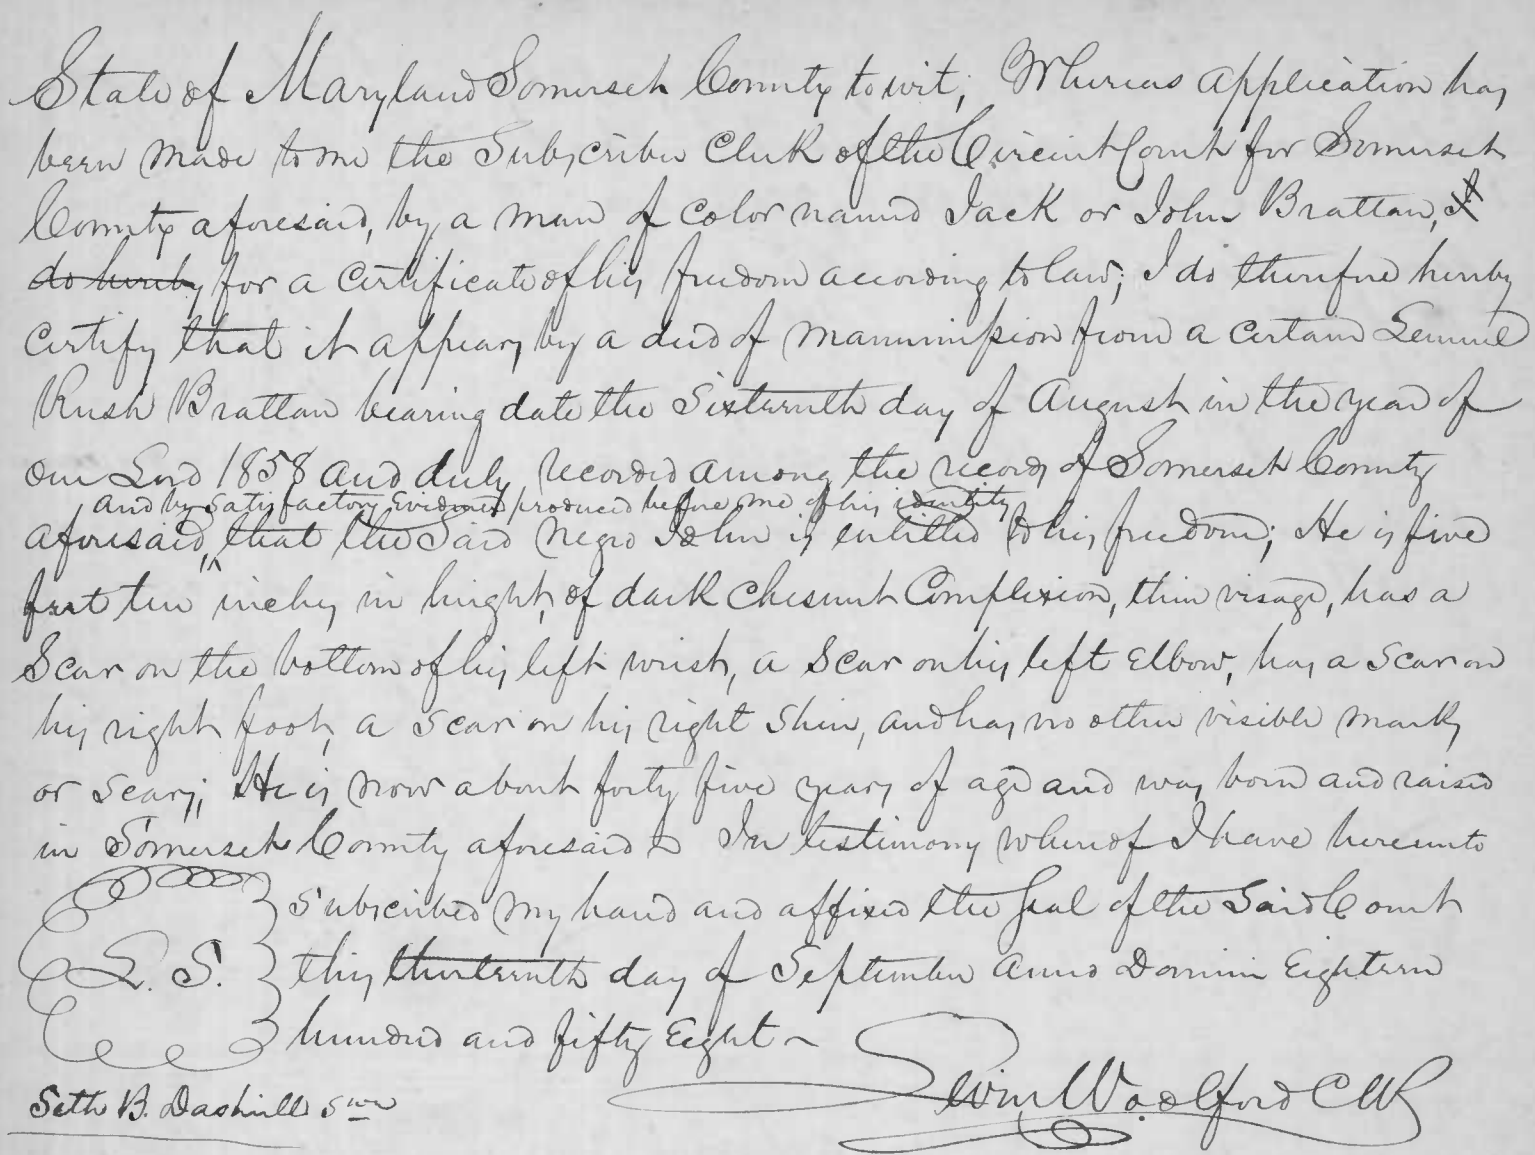 State of Maryland Somerset County to wit; Whereas application has
been made to me the Subscriber Clerk of the Circuit Court for Somerset
County aforesaid, by a man of color named Jack or John Brattan, I
do hereby for a certificate of his freedom according to law; I do therefore hereby
certify that it appears by a deed of manumission from a certain Lemuel
Rush Brattan bearing date the Sixteenth day of August in the year of
our Lord 1858 and duly recorded among the records of Somerset County
and by Satisfactory Evidence produced before me of his identity
aforesaid, that the Said Negro John is entitled to his freedom; He is five
feet ten inches in hight, of dark Chesnut Complexion, thin visage, has a
Scar on the bottom of his left wrist, a Scar on his left Elbow, has a scar on
his right foot, a scar on his right Shin, and has no other visible marks
or scars; He is now about forty five years of age and was born and raised
in Somerset County aforesaid In testimony whereof I have hereunto
Subscribed my hand and affixed the Seal of the Said Court
L. S. this thirteenth day of September Anno Domini Eighteen
hundred and fifty Eight ~
Levin Woolford Clk
Seth B. Dashiell swr